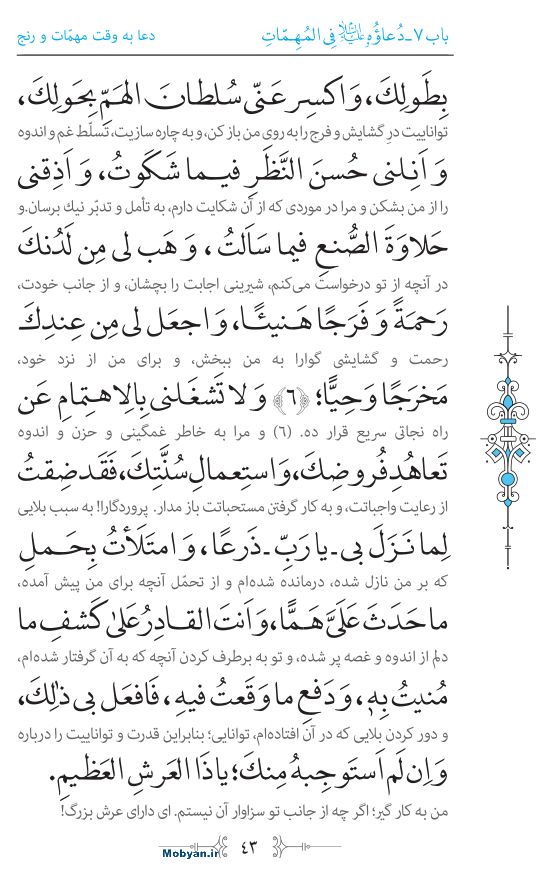 باب ۷ ـ دُعاؤُهُ عليه‌السلام فِی المُهِمّاتِ
دعا به وقت مهمّات و رنج
بِطَولِكَ، وَ اكسِر عَنّی سُلطانَ الهَمِّ بِحَولِكَ،
تواناییت درِ گشایش و فرج را به روی من باز کن، و به چاره سازیت، تسلّط غم و اندوه
وَ اَنِلنی حُسنَ النَّظَرِ فیـما شَكَوتُ، وَ اَذِقنی
را از من بشکن و مرا در موردی که از آن شکایت دارم، به تأمل و تدبّر نیك برسان. و
حَلاوَةَ الصُّنعِ فیما سَاَلتُ ، وَ هَب لی مِن لَدُنكَ
در آنچه از تو درخواست می‌کنم، شیرینی اجابت را بچشان، و از جانب خودت،
رَحمَةً وَ فَرَجًا هَـنیئًـا، وَ اجعَل لی مِن عِندِكَ
رحمت و گشایشی گوارا به من ببخش، و برای من از نزد خود،
مَخرَجًا وَحِیًّا؛ ﴿٦﴾ وَ لا تَشغَلنی بِالِاهـتِمامِ عَن
راه نجاتی سریع قرار ده. (۶) و مرا به خاطر غمگینی و حزن و اندوه
تَعاهُدِ فُروضِكَ، وَ استِعمالِ سُنَّتِكَ، فَقَد ضِقتُ
از رعایت واجباتت، و به کار گرفتن مستحباتت باز مدار. پروردگارا! به سبب بلایی
لِما نَـزَلَ بی ـ یا رَبِّ ـ ذَرعًا ، وَ امتَلَأتُ بِحَـملِ
که بر من نازل شده، درمانده شده‌ام و از تحمّل آنچه برای من پیش آمده،
ما حَدَثَ عَلَیَّ هَمًّا، وَ اَنتَ القادِرُ عَلیٰ كَشفِ ما
دلم از اندوه و غصه پر شده، و تو به برطرف کردن آنچه که به آن گرفتار شده‌ام،
مُنیتُ بِهٖ، وَ دَفعِ ما وَقَعتُ فیهِ ، فَافعَل بی ذٰلِكَ،
و دور کردن بلایی که در آن افتاده‌ام، توانایی؛ بنابراین قدرت و تواناییت را درباره
وَ اِن لَم اَستَوجِبهُ مِنكَ؛ یا ذَا العَرشِ العَظیمِ.
من به کار گیر؛ اگر چه از جانب تو سزاوار آن نیستم. ای دارای عرش بزرگ!
۴۳
Mobyan.ir